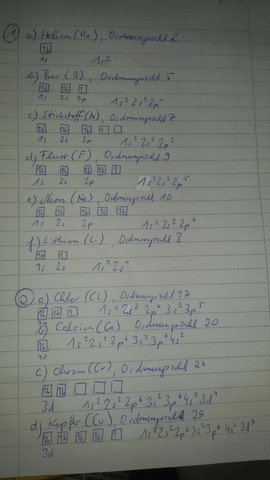 ① a) Helium (He), Ordnungszahl 2
1s 1s²
b) Bor (B), Ordnungszahl 5
1s 2s 2p 1s² 2s² 2p¹
c) Stickstoff (N), Ordnungszahl 7
1s 2s 2p 1s² 2s² 2p³
d) Fluor (F), Ordnungszahl 9
1s 2s 2p 1s² 2s² 2p⁵
e) Neon (Ne), Ordnungszahl 10
1s 2s 2p 1s² 2s² 2p⁶
f) Lithium (Li), Ordnungszahl 3
1s 2s 1s² 2s¹
② a) Chlor (Cl), Ordnungszahl 17
1s² 2s² 2p⁶ 3s² 3p⁵
b) Calcium (Ca) Ordnungszahl 20
1s² 2s² 2p⁶ 3s² 3p⁶ 4s²
4s
c) Chrom (Cr), Ordnungszahl 24
3d 1s² 2s² 2p⁶ 3s² 3p⁶ 4s² 3d⁴
d) Kupfer (Cu), Ordnungszahl 29
1s² 2s² 2p⁶ 3s² 3p⁶ 4s² 3d⁹
3d